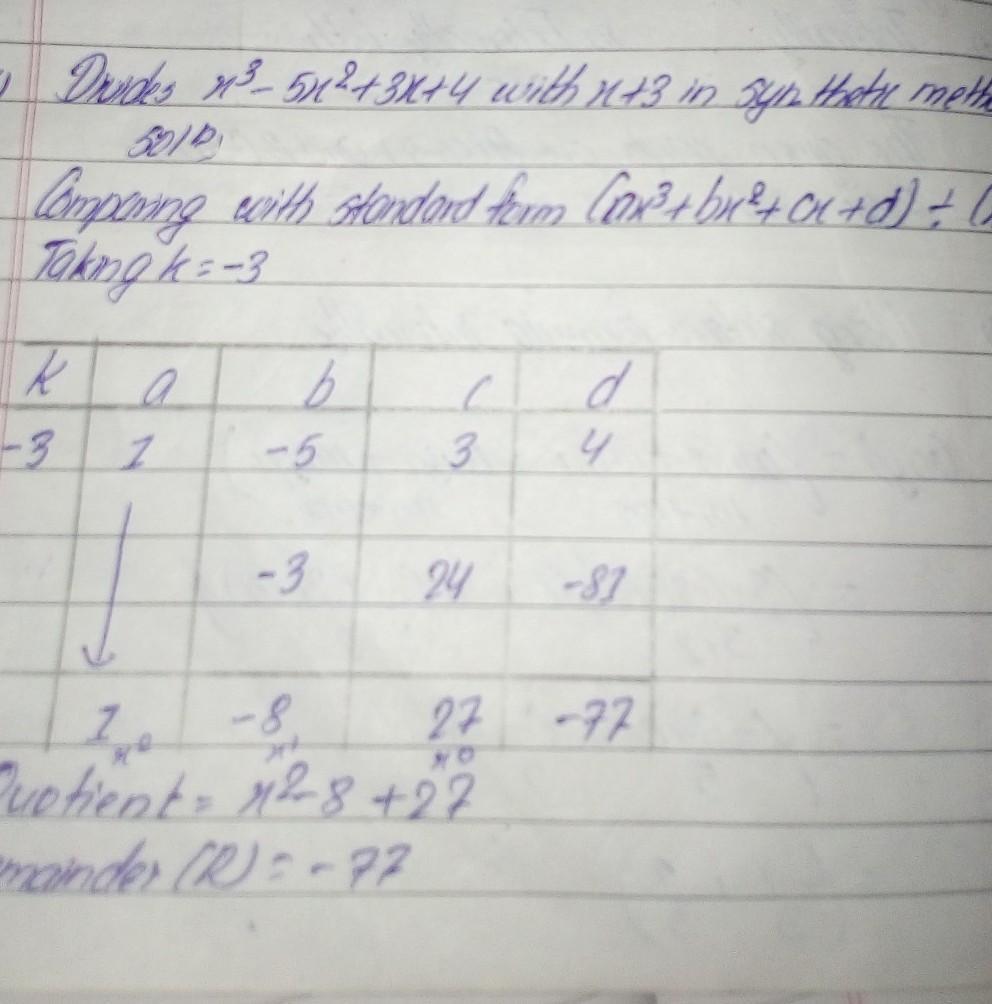 ) Divides x³- 5x²+3x+4 with x+3 in synthetic meth
solⁿ;
Comparing with standard form (ax³+bx²+cx+d) ÷ (
Taking k = -3
k a b c d
-3 1 -5 3 4
-3 24 -81
1 -8 27 -77
x⁰ x¹ x⁰
Quotient = x²-8 +27
mainder (R) = -77